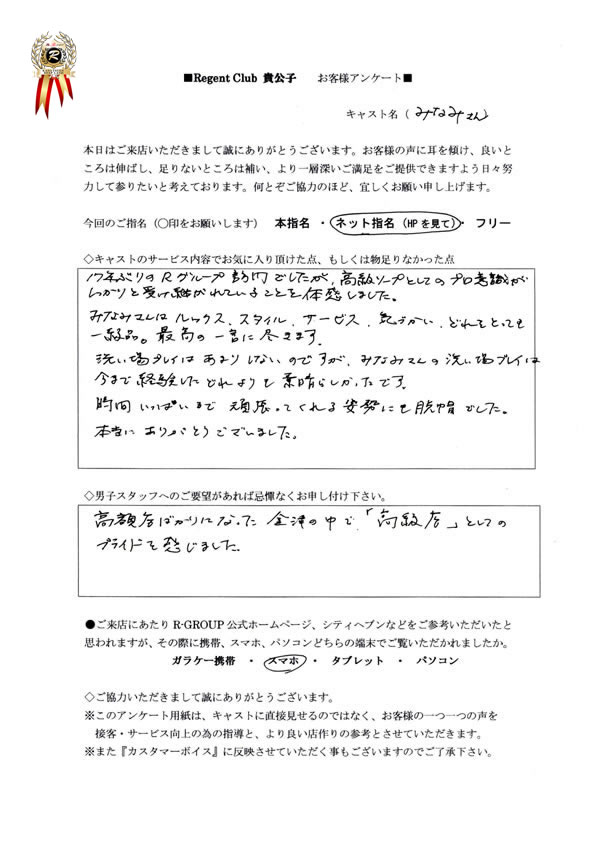 ■Regent Club 貴公子　お客様アンケート■
キャスト名（ みなみさん
本日はご来店いただきまして誠にありがとうございます。お客様の声に耳を傾け、良いと
ころは伸ばし、足りないところは補い、より一層深いご満足をご提供できますよう日々努
力して参りたいと考えております。何とぞご協力のほど、宜しくお願い申し上げます。
今回のご指名（〇印をお願いします） 本指名 ・ ネット指名（HPを見て）・ フリー
◇キャストのサービス内容でお気に入り頂けた点、もしくは物足りなかった点
17年ぶりのRグループ訪問でしたが、高級ソープとしてのプロ意識が
しっかりと受け継がれていることを体感しました。
みなみさんはルックス、スタイル、サービス、気づかい、どれをとっても
一級品。最高の一言に尽きます。
洗い場プレイはあまりしないのですが、みなみさんの洗い場プレイは
今まで経験したどれよりも素晴らしかったです。
時間いっぱいまで頑張ってくれる姿勢にも脱帽でした。
本当にありがとうございました。
◇男子スタッフへのご要望があれば忌憚なくお申し付け下さい。
高額店ばかりになった金津の中で、「高級店」としての
プライドを感じました。
●ご来店にあたり R-GROUP 公式ホームページ、シティヘブンなどをご参考いただいたと
思われますが、その際に携帯、スマホ、パソコンどちらの端末でご覧いただかれましたか。
ガラケー携帯 ・ スマホ ・ タブレット ・ パソコン
◇ご協力いただきまして誠にありがとうございます。
※このアンケート用紙は、キャストに直接見せるのではなく、お客様の一つ一つの声を
接客・サービス向上の為の指導と、より良い店作りの参考とさせていただきます。
※また『カスタマーボイス』に反映させていただく事もございますのでご了承下さい。